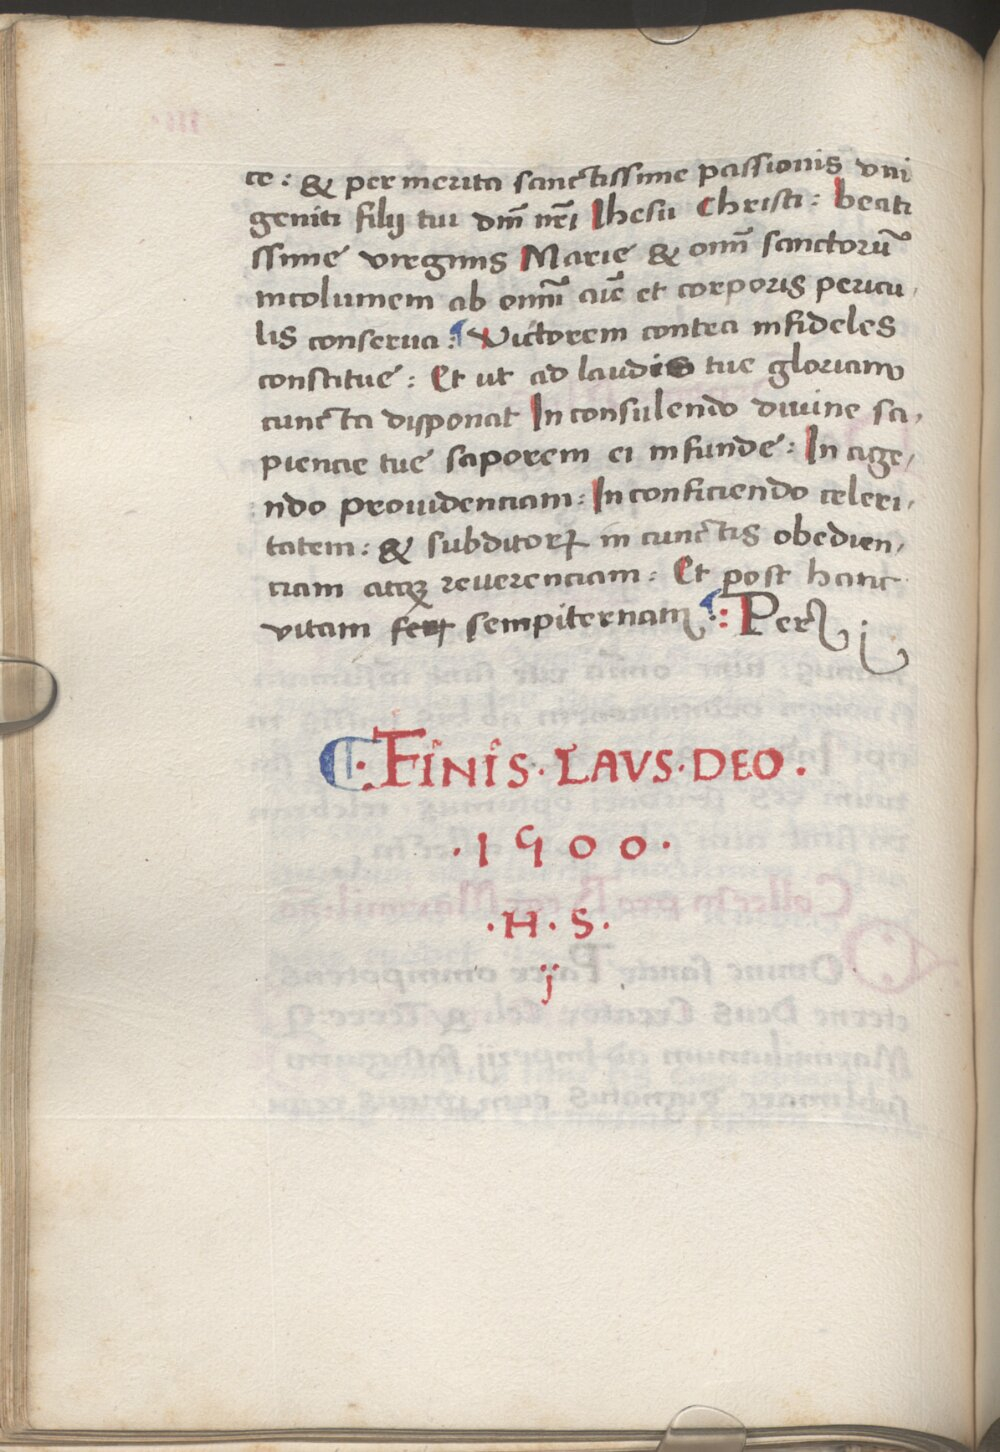 te : & per merita sanctissime passionis vni
geniti filij tui dn̄i nr̄i Ihesu Christi : beati
ssime virginis Marie & omn̄ sanctorū
incolumem ab omnī aīe et corporis pericu,
lis conserua : Victorem contra infideles
constitue : Et ut ad laudis tue gloriam
cuncta disponat In consulendo diuine sa,
piencie tue saporem ei infunde : In age,
ndo prouidenciam : In conficiendo celeri,
tatem : & subditorꝝ in cunctis obedien,
ciam atqꝫ reuerenciam : Et post hanc
vitam sempiternam : Per
¶ · FINIS · LAVS · DEO .
. 1 5 0 0 .
. H . S .
ij